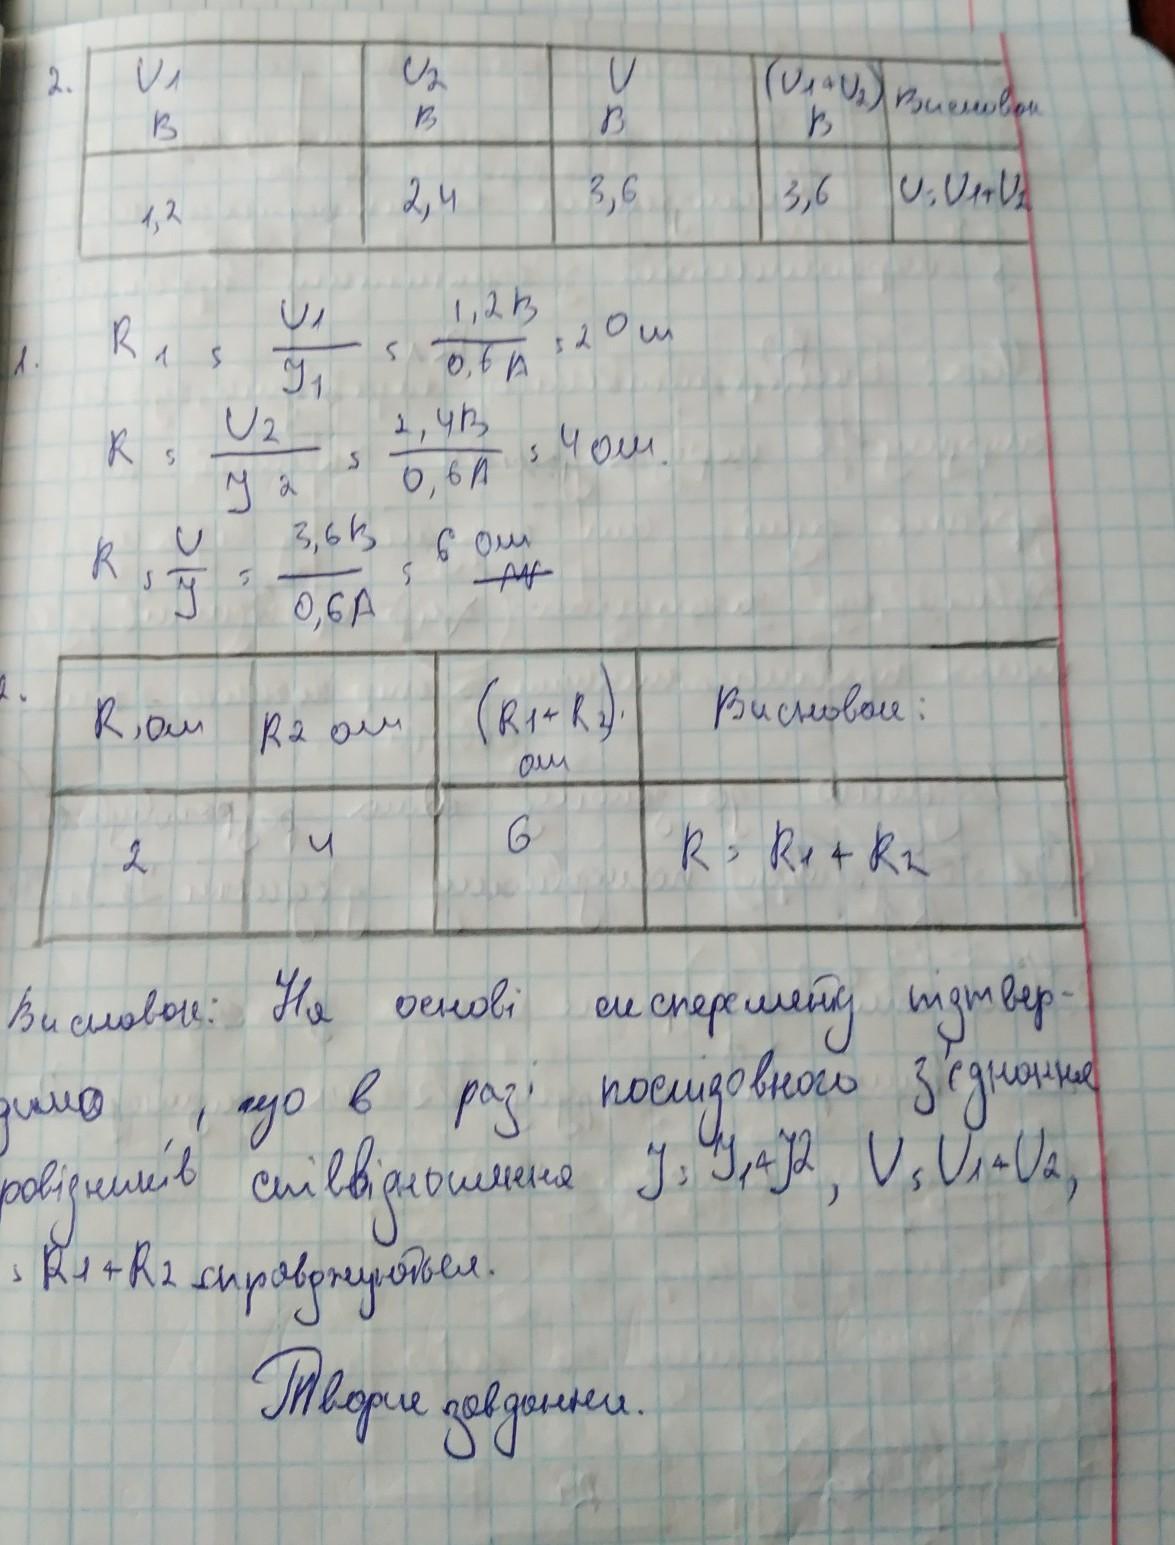 2.
U1 В | U2 В | U В | (U1+U2) В | Висновок
1,2 | 2,4 | 3,6 | 3,6 | U=U1+U2
1. R1 = U1/I1 = 1,2В/0,6А = 2 Ом
R = U2/I2 = 2,4В/0,6А = 4 Ом.
R = U/I = 3,6В/0,6А = 6 Ом
2.
R1 ом | R2 ом | (R1+R2). ом | Висновок:
2 | 4 | 6 | R = R1 + R2
Висновок: На основі експеременту підтвер-
димо, що в разі послідовного з'єднання
ровідників співвідношення I=I1+I2, U=U1+U2,
= R1+R2 справджуються.
Творче завдання.